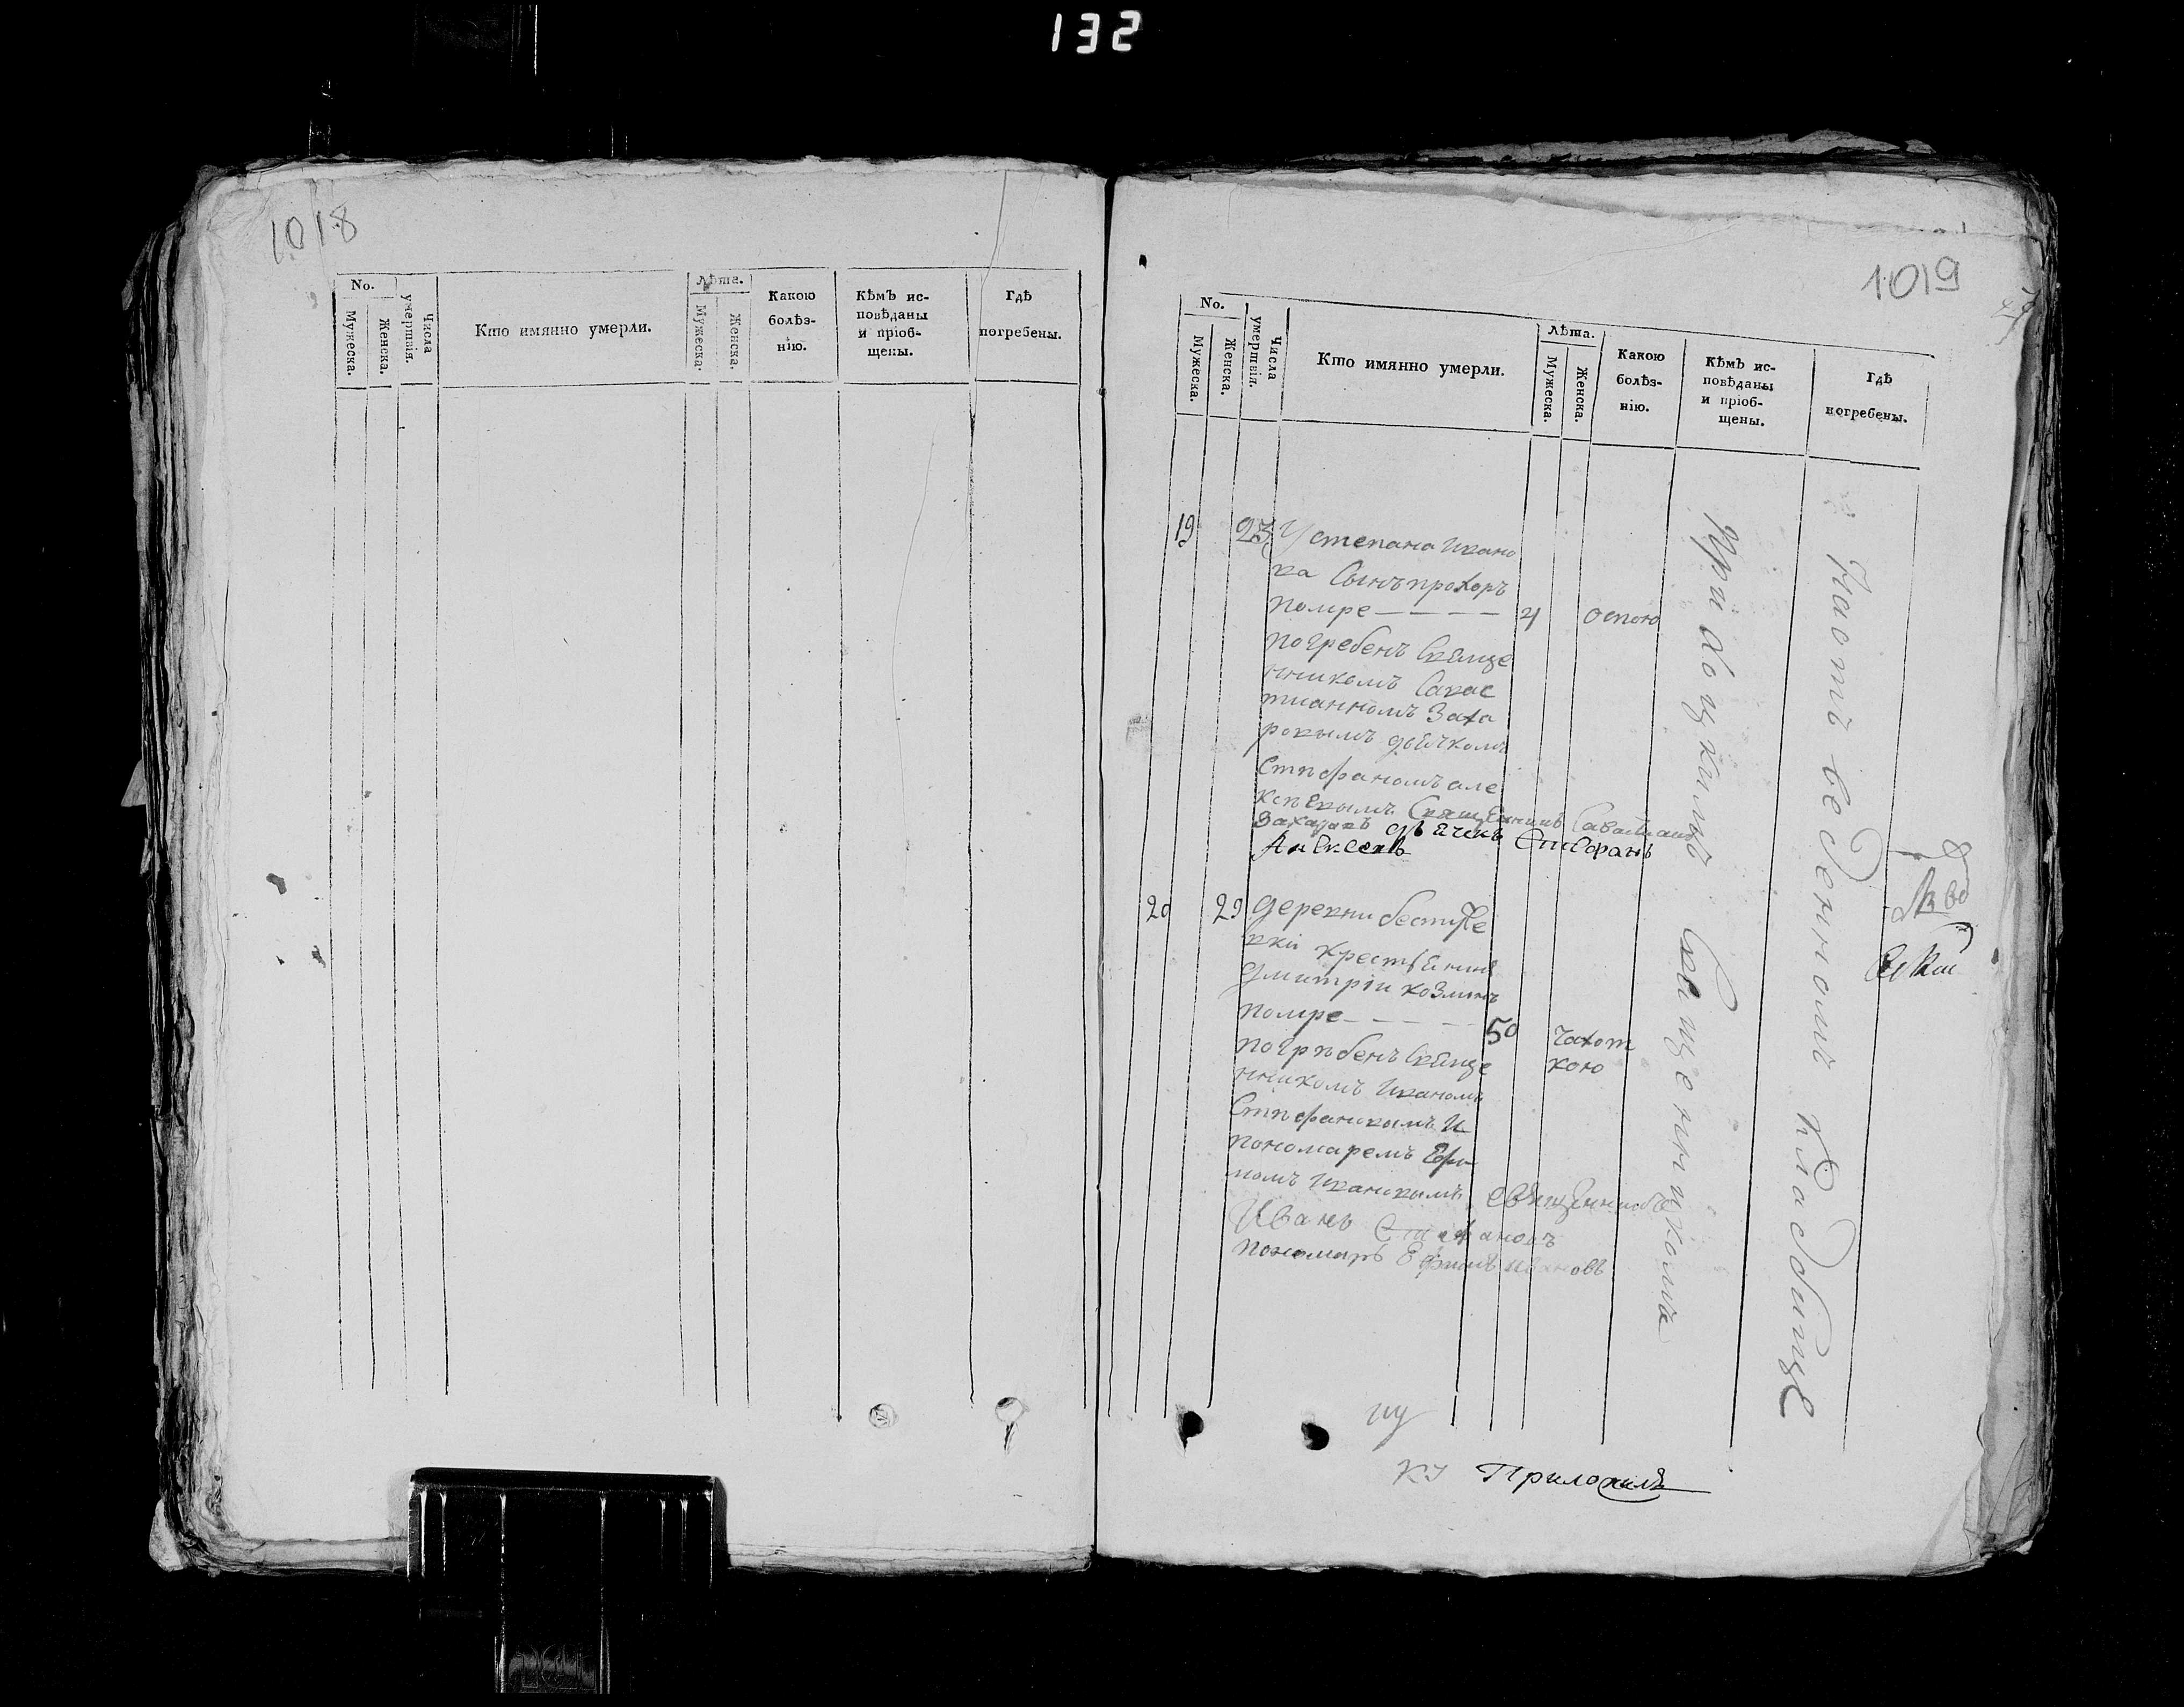 132
1018
No.
Мужеска.
Женска.
Числа умертвія.
Кто имянно умерли.
Лѣта.
Мужеска.
Женска.
Какою болѣз-
нію.
Кѣмъ ис-
повѣданы
и пріоб-
щены.
Гдѣ
погребены.
1019
No.
Мужеска.
Женска.
Числа умертвія.
Кто имянно умерли.
Лѣта.
Мужеска.
Женска.
Какою
болѣз-
нію.
Кѣмъ ис-
повѣданы
и пріоб-
щены.
Гдѣ
погребены.
19 23 У степана ивано
ва сынъ прохоръ
помре 4 оспою
погребенъ свяще
нникомъ савас
тианномъ Заха
ровымъ дьячкомъ
Стефаномъ але
ксѣевымъ Священникъ
Захаровъ дьячекъ Стефанъ
Алексеевъ
20 29 деревни
крестьянинъ
дмитріи козминъ
помре 50 чахот
кою
погрѣбенъ свяще
нникомъ иваномъ
Стефановымъ и
пономаремъ Ефи
момъ ивановымъ священникъ
Иванъ Стефановъ
пономарь Ефимъ ивановъ
Приходскимъ священникомъ
На отведенномъ кладбище
Приложилъ